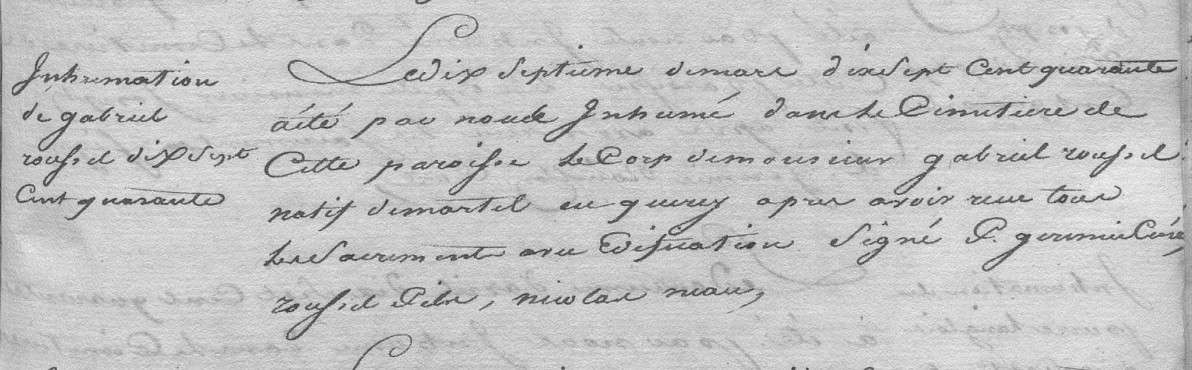 Inhumation
de gabriel
roussel dix Sept
Cent quarante
Le dix Septieme de mars dix Sept Cent quarante
a été par nous Inhumé dans le Cimitiere de
Cette paroisse le Corp de monsieur gabriel roussel
natif de martel en quercy apres avoir reçue tous
les Sacrements avec Edification Signé P.
roussel fils, nicolas